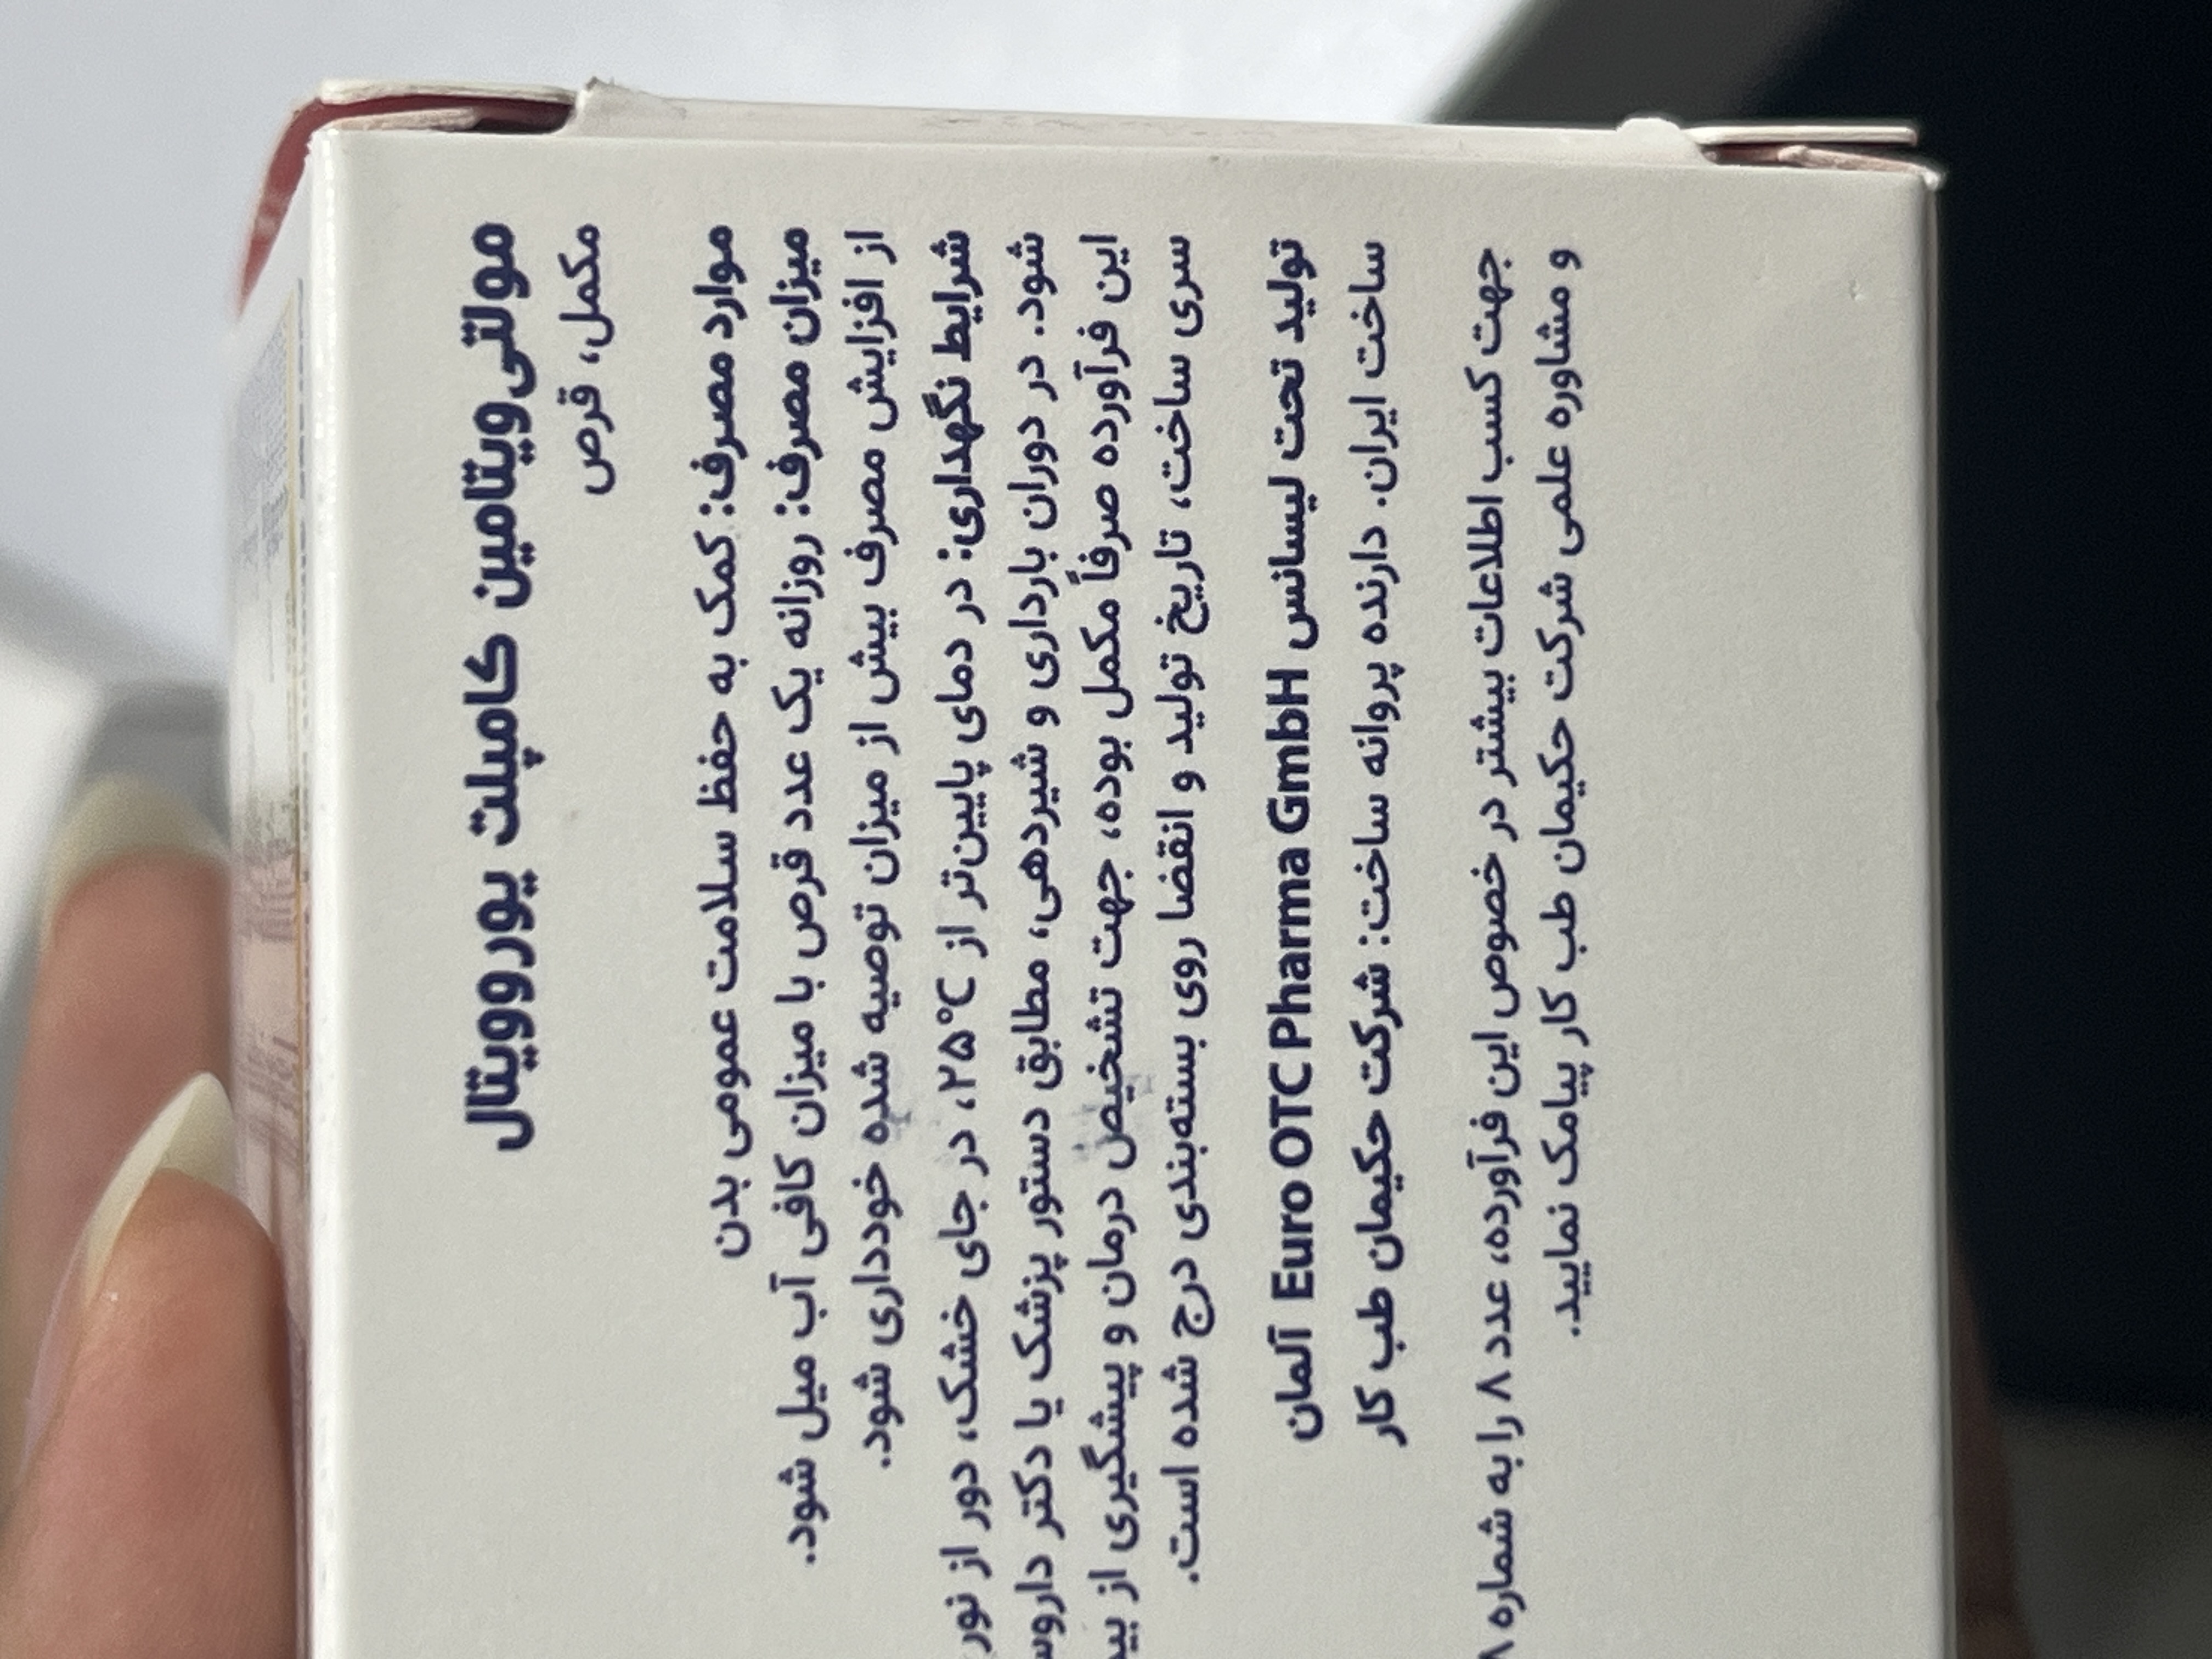 مولتی‌ویتامین کامپلت یوروویتال
مکمل، قرص
موارد مصرف: کمک به حفظ سلامت عمومی بدن
میزان مصرف: روزانه یک عدد قرص با میزان کافی آب میل شود.
از افزایش مصرف بیش از میزان توصیه شده خودداری شود.
شرایط نگهداری: در دمای پایین‌تر از ۲۵°C، در جای خشک، دور از نور
شود. در دوران بارداری و شیردهی، مطابق دستور پزشک یا دکتر
این فرآورده صرفاً مکمل بوده، جهت تشخیص درمان و پیشگیری از
سری ساخت، تاریخ تولید و انقضا روی بسته‌بندی درج شده است.
تولید تحت لیسانس Euro OTC Pharma GmbH آلمان
ساخت ایران. دارنده پروانه ساخت: شرکت حکیمان طب کار
جهت کسب اطلاعات بیشتر در خصوص این فرآورده، عدد ۸ را به شماره
و مشاوره علمی شرکت حکیمان طب کار پیامک نمایید.